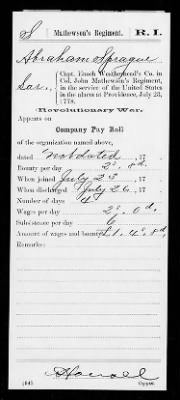 S | Mathewson's Regiment. | R. I.
Abraham Sprague
Sar., Capt. Enoch Weatherhead's Co. in
Col. John Mathewson's Regiment,
in the service of the United States
in the alarm at Providence, July 23,
1778.
Revolutionary War.
Appears on
Company Pay Roll
of the organization named above,
dated not dated, 17
Bounty per day 2s. 8d.
When joined July 23, 17
When discharged July 26, 17
Number of days 4
Wages per day 2s. 0d.
Subsistence per day
Amount of wages and bounty £ 4s. 8d.
Remarks:
(646)
Copyist.